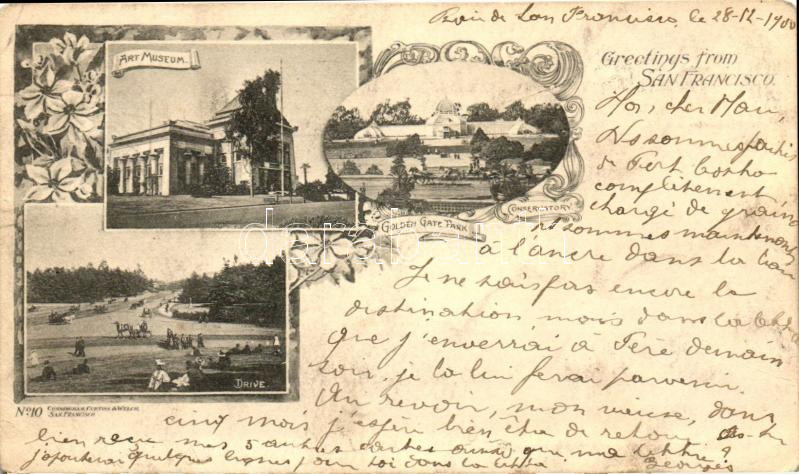 Baie de San Francisco, le 28-12-1900
Greetings from
SAN FRANCISCO.
ART MUSEUM.
CONSERVATORY
GOLDEN GATE PARK
DRIVE.
No 10 CUNNINGHAM, CURTISS & WELCH,
SAN FRANCISCO
cher
Nous sommes partis
de Port Costa
complètement
chargé de grains
et sommes maintenant
à l'ancre dans la baie
Je ne sais pas encore la
destination mais dans la lettre
que j'enverrai à Père demain
soir, je la lui ferai parvenir.
Au revoir, mon vieux, dans
cinq mois j'espère bien être de retour. As-tu
bien reçu mes 5 autres cartes ainsi que ma lettre?
j'ajouterai quelques lignes pour toi dans la lettre
darabanth